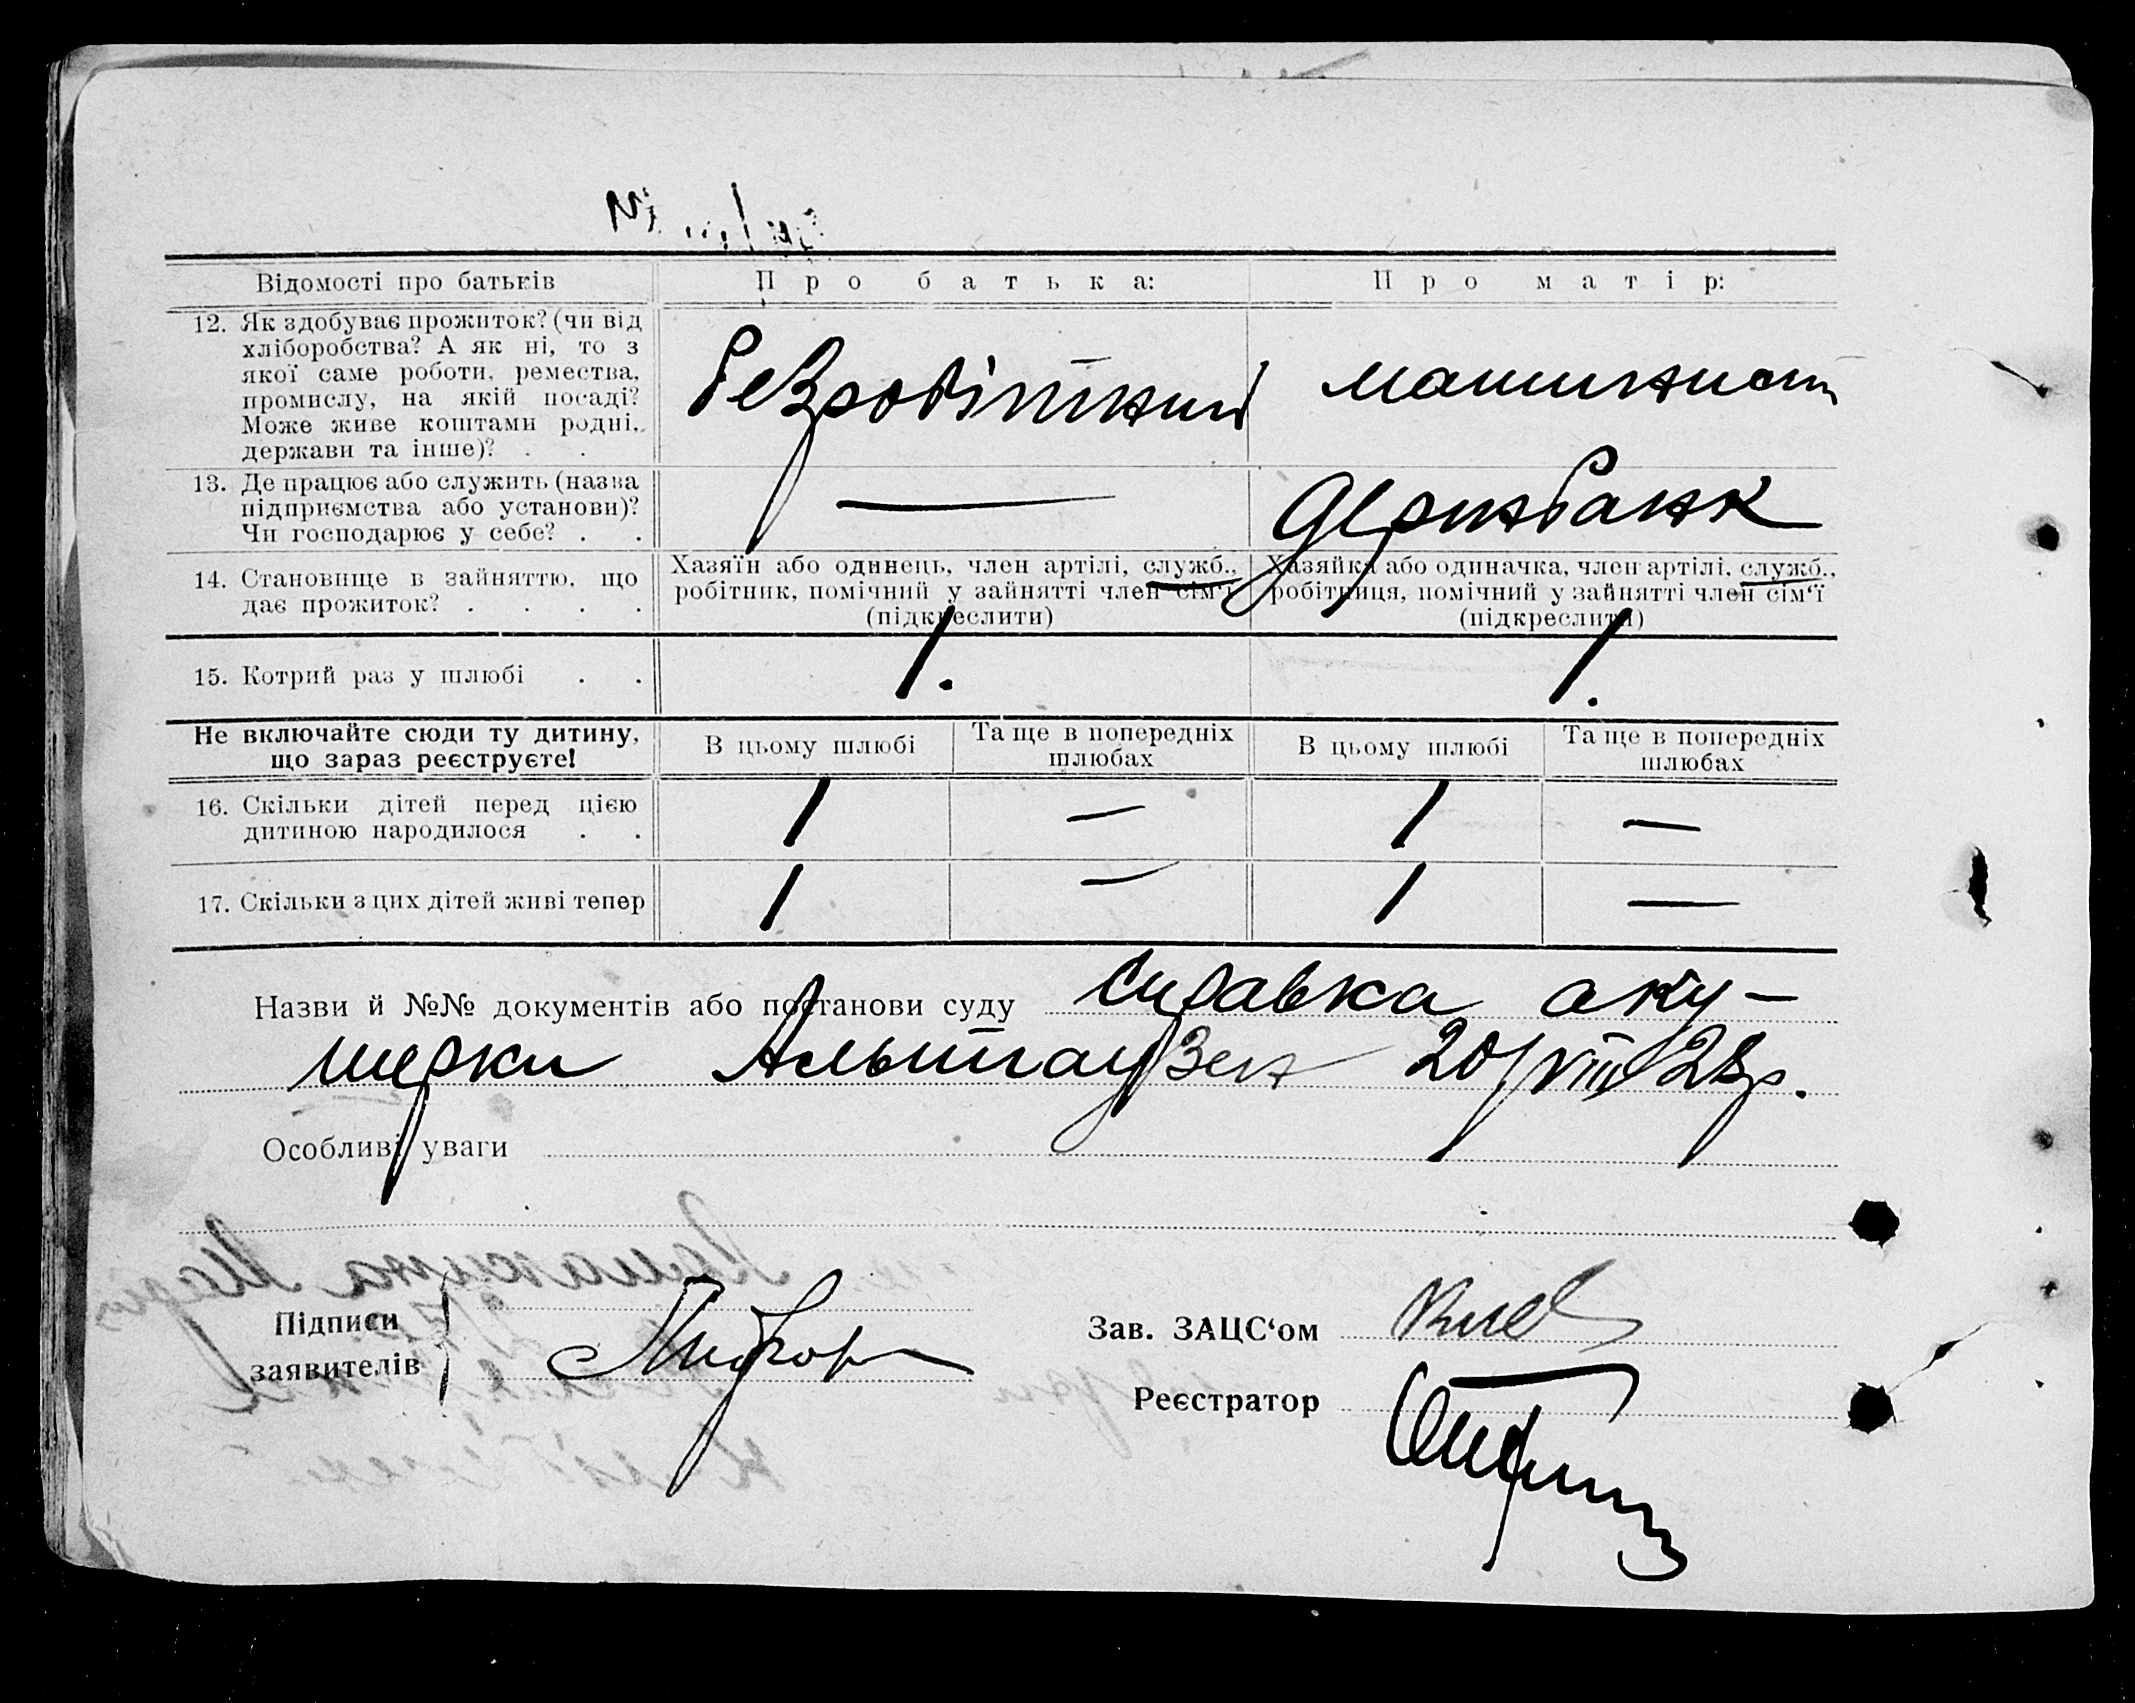 Відомості про батьків Про батька: Про матір:
12. Як здобуває прожиток? (чи від
хліборобства? А як ні, то з
якої саме роботи, ремества,
промислу, на якій посаді?
Може живе коштами родні,
держави та інше)? . .
безробітний машинист
13. Де працює або служить (назва
підприємства або установи)?
Чи господарює у себе? . .
— Держбанк
14. Становище в зайняттю, що
дає прожиток? . . . .
Хазяїн або одинець, член артілі, служб.,
робітник, помічний у зайнятті член сім‘ї
(підкреслити)
Хазяйка або одиначка, член артілі, служб.,
робітниця, помічний у зайнятті член сім‘ї
(підкреслити)
15. Котрий раз у шлюбі . . 1. 1.
Не включайте сюди ту дитину,
що зараз реєструєте!
В цьому шлюбі Та ще в попередніх
шлюбах
В цьому шлюбі Та ще в попередніх
шлюбах
16. Скільки дітей перед цією
дитиною народилося . .
1 — 1 —
17. Скільки з цих дітей живі тепер 1 — 1 —
Назви й №№ документів або постанови суду справка аку-
шерки Альтгаузен 20/VIII 28р.
Особливі уваги
Підписи
заявителів
Зав. ЗАЦС‘ом
Реєстратор